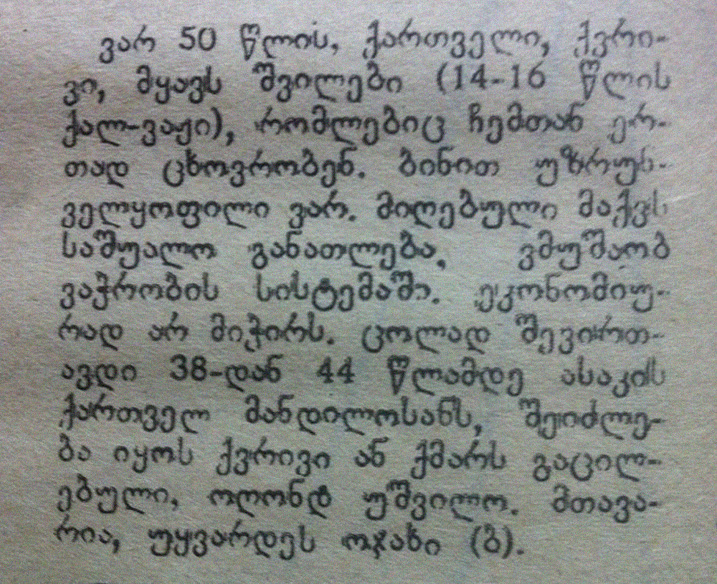 ვარ 50 წლის, ქართველი, ქვრი-
ვი, მყავს შვილები (14-16 წლის
ქალ-ვაჟი), რომლებიც ჩემთან ერ-
თად ცხოვრობენ. ბინით უზრუნ-
ველყოფილი ვარ. მიღებული მაქვს
საშუალო განათლება, ვმუშაობ
ვაჭრობის სისტემაში. ეკონომიუ-
რად არ მიჭირს. ცოლად შევირთ-
ავდი 38-დან 44 წლამდე ასაკის
ქართველ მანდილოსანს, შეიძლე-
ბა იყოს ქვრივი ან ქმარს გაცილ-
ებული, ოღონდ უშვილო. მთავა-
რია, უყვარდეს ოჯახი (ბ).